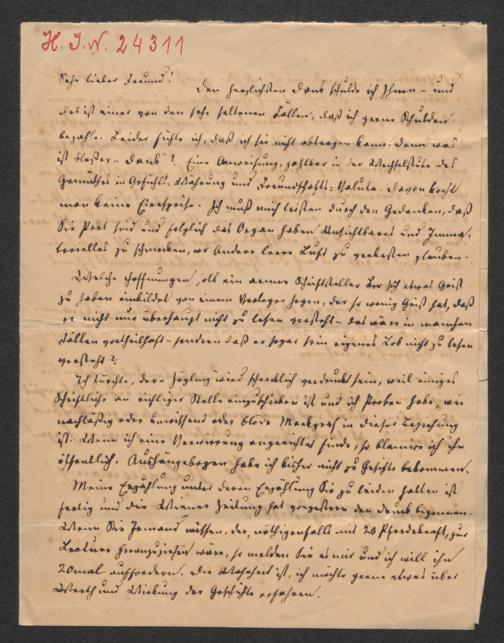 H. I. N. 24311
Sehr lieber Freund! Den herzlichsten Dank schulde ich Ihnen – und
das ist einer von den sehr seltenen Fällen, daß ich gerne Schulden
bezahle. Leider fühle ich, daß ich sie nicht abtragen kann. denn was
ist bloßer – Dank? Eine Anweisung, zahlbar in der Wechselstube des
Gemüthes in Gefühls-Währung und Freundschafts-Valuta. Davon kocht
man keine Eierspeise. Ich muß mich trösten durch den Gedanken, daß
Sie Poet sind und folglich das Organ haben Unsichtbares und Imma-
terielles zu schmecken, wo Andere leere Luft zu verkosten glauben.
Welche Hoffnungen soll ein armer Schriftsteller der sich etwas Geist
zu haben einbildet von einem Verleger hegen, der so wenig Geist hat, daß
er nicht nur überhaupt nicht zu lesen versteht – das wäre in manchen
Fällen vortheilhaft – sondern daß er sogar sein eigenes Lob nicht zu lesen
versteht?
Ich fürchte, der Zögling wird schrecklich verdruckt sein, weil einiges
Schriftliche an richtiger Stelle einzuschieben ist und ich Proben habe, wie
nachläßig oder unwissend oder blöde Marbgreth in dieser Beziehung
ist. Wenn ich eine Verwirrung angerichtet finde, so blamire ich ihn
öffentlich. Aushängebogen habe ich bisher nicht zu Gesichte bekommen.
Meine Erzählung unter deren Erzählung Sie zu leiden hatten ist
fertig und die Wiener Zeitung hat vorgestern den Druck begonnen.
Wenn Sie Jemand wissen, der, nöthigenfalls mit 20 Pferdekraft, zur
Lectüre heranzuziehen wäre, so melden Sie es mir und ich will ihn
20mal auffordern. Die Wahrheit ist, ich möchte gerne etwas über
Werth und Wirkung der Geschichte erfahren.